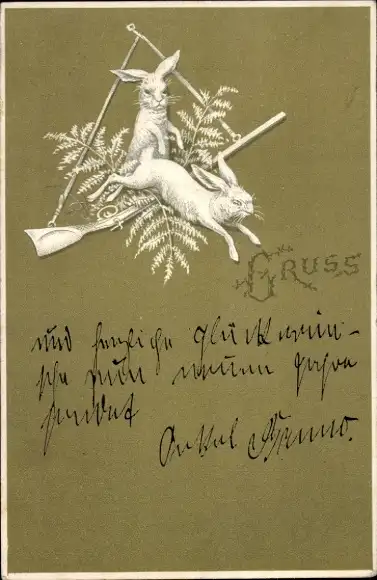 GRUSS
und herzliche Glückwün-
sche zum neuen Jahre
sendet
Onkel Benno.